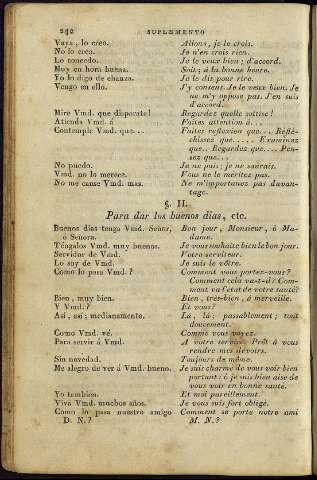 242 SUPLEMENTO
Vaya, lo creo. Allons, je le crois.
No lo creo. Je n'en crois rien.
Lo concedo. Je le veux bien; d'accord.
Muy en hora buena. Soit; à la bonne heure.
Yo lo digo de chanza. Je le dis pour rire.
Vengo en ello. J'y consens. Je le veux bien. Je
ne m'y oppose pas. J'en suis
d'accord.
Mire Vmd. que disparate! Regardez quelle sottise!
Atienda Vmd. á Faites attention à...
Contemple Vmd. que... Faites réflexion que... Réflé-
chissez que..... Examinez
que... Regardez que.... Pen-
sez que...
No puedo. Je ne puis; je ne saurais.
Vmd. no lo merece. Vous ne le méritez pas.
No me canse Vmd. mas. Ne m'importunez pas davan-
tage.
§. II.
Para dar los buenos dias, etc.
Buenos dias tenga Vmd. Señor, Bon jour, Monsieur, ô Ma-
ó Señora. dame.
Téngalos Vmd. muy buenos. Je vous souhaite bien le bon jour.
Servidor de Vmd. Votre serviteur.
Lo soy de Vmd. Je suis le vôtre.
Como lo pasa Vmd.? Comment vous portez-vous?
Comment cela va-t-il? Com-
ment va l'état de votre santé?
Bien, muy bien. Bien, très-bien, à merveille.
Y Vmd.? Et vous?
Asi, asi; medianamente. La, là; passablement; tout
doucement.
Como Vmd. vé. Comme vous voyez.
Para servir á Vmd. A votre service. Prêt à vous
rendre mes devoirs.
Sin novedad. Toujours de même.
Me alegro de ver á Vmd. bueno. Je suis charmé de vous voir bien
portant: ô je suis bien aise de
vous voir en bonne santé.
Yo tambien. Et moi pareillement.
Viva Vmd. muchos años. Je vous suis fort obligé.
Como lo pasa nuestro amigo Comment se porte notre ami
D. N.? M. N.?